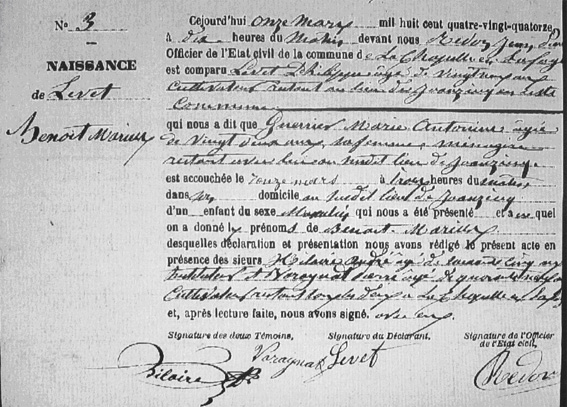 N° 3
NAISSANCE
de Levet
Benoit Marius
Cejourd'hui onze Mars mil huit cent quatre-vingt-quatorze
à dix heures du Matin devant nous Redon
Officier de l'Etat civil de la commune de La Chapelle en
est comparu Levet Philippe âgé de vingt ans
Cultivateur en cette
Commune
qui nous a dit que Guerrier Marie Antonine âgée
de Vingt deux ans sa femme ménagère
restant avec lui au susdit lieu de
est accouchée le onze mars à trois heures du matin
dans son domicile au susdit lieu de
d'un enfant du sexe Masculin qui nous a été présenté et auquel
on a donné les prénoms de Benoit Marius
desquelles déclaration et présentation nous avons rédigé le présent acte en
présence des sieurs Hilaire André âgé de cinq ans
Instituteur et Voragnat Pierre âgé de quarante ans
Cultivateur restant tous les deux a La Chapelle en
et, après lecture faite, nous avons signé. avec eux
Signature des deux Témoins, Signature du Déclarant, Signature de l'Officier
de l'Etat civil,
Voragnat Levet
Hilaire Redon